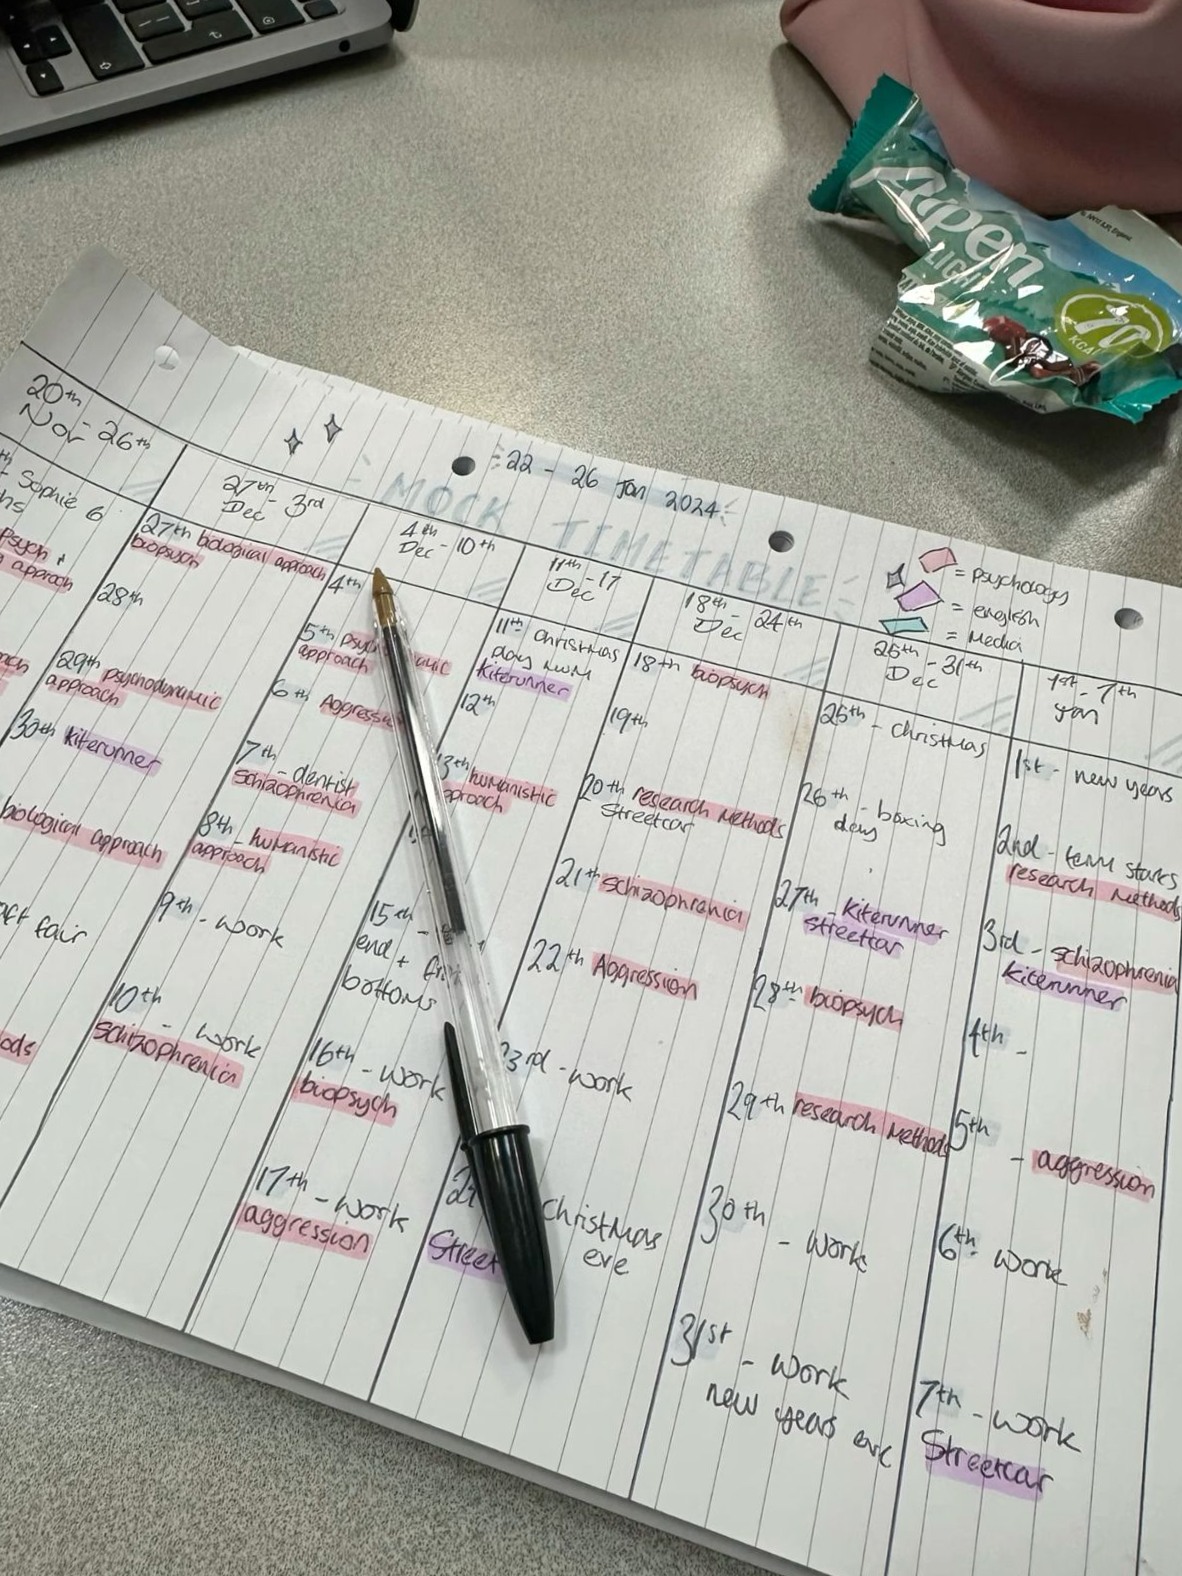 Alpen
LIGHT
70
KCAL
22 - 26 Jan 2024
MOCK TIMETABLE
= psychology
= english
= Media
20th - 26th
Nov
Sophie 6
psych +
approach
biological approach
fair
27th - 3rd
Dec
27th biological approach
biopsych
28th
29th psychodynamic
approach
30th Kiterunner
4th - 10th
Dec
4th
5th
approach
6th
7th - dentist
schizophrenia
8th - humanistic
approach
9th - work
10th - work
schizophrenia
11th - 17
Dec
11th christmas
day mum
Kiterunner
12th
13th humanistic
15th -
end +
bottoms
16th - work
biopsych
17th - work
aggression
18th - 24th
Dec
18th biopsych
19th
20th research methods
streetcar
21th schizophrenia
22th Aggression
23rd - work
Christmas
eve
25th - 31th
Dec
25th - christmas
26th - boxing
day
27th - Kiterunner
streetcar
28th biopsych
29th research methods
30th - work
31st - work
new years eve
1st - 7th
Jan
1st - new years
2nd - term starts
research methods
3rd - schizophrenia
Kiterunner
4th -
5th - aggression
6th work
7th - work
Streetcar